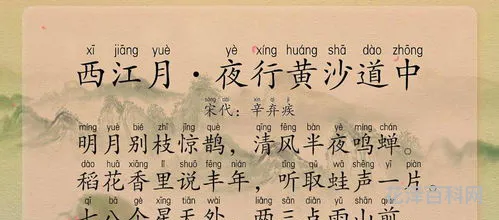 xī jiāng yuè yè xíng huáng shā dào zhōng
西江月·夜行黄沙道中
sòng dài xīn qì jí
宋代：辛弃疾
míng yuè bié zhī jīng què qīng fēng bàn yè míng chán
明月别枝惊鹊，清风半夜鸣蝉。
dào huā xiāng lǐ shuō fēng nián tīng qǔ wā shēng yī piàn
稻花香里说丰年，听取蛙声一片。
qī bā gè xīng tiān wài liǎng sān diǎn yǔ shān qián
七八个星天外，两三点雨山前